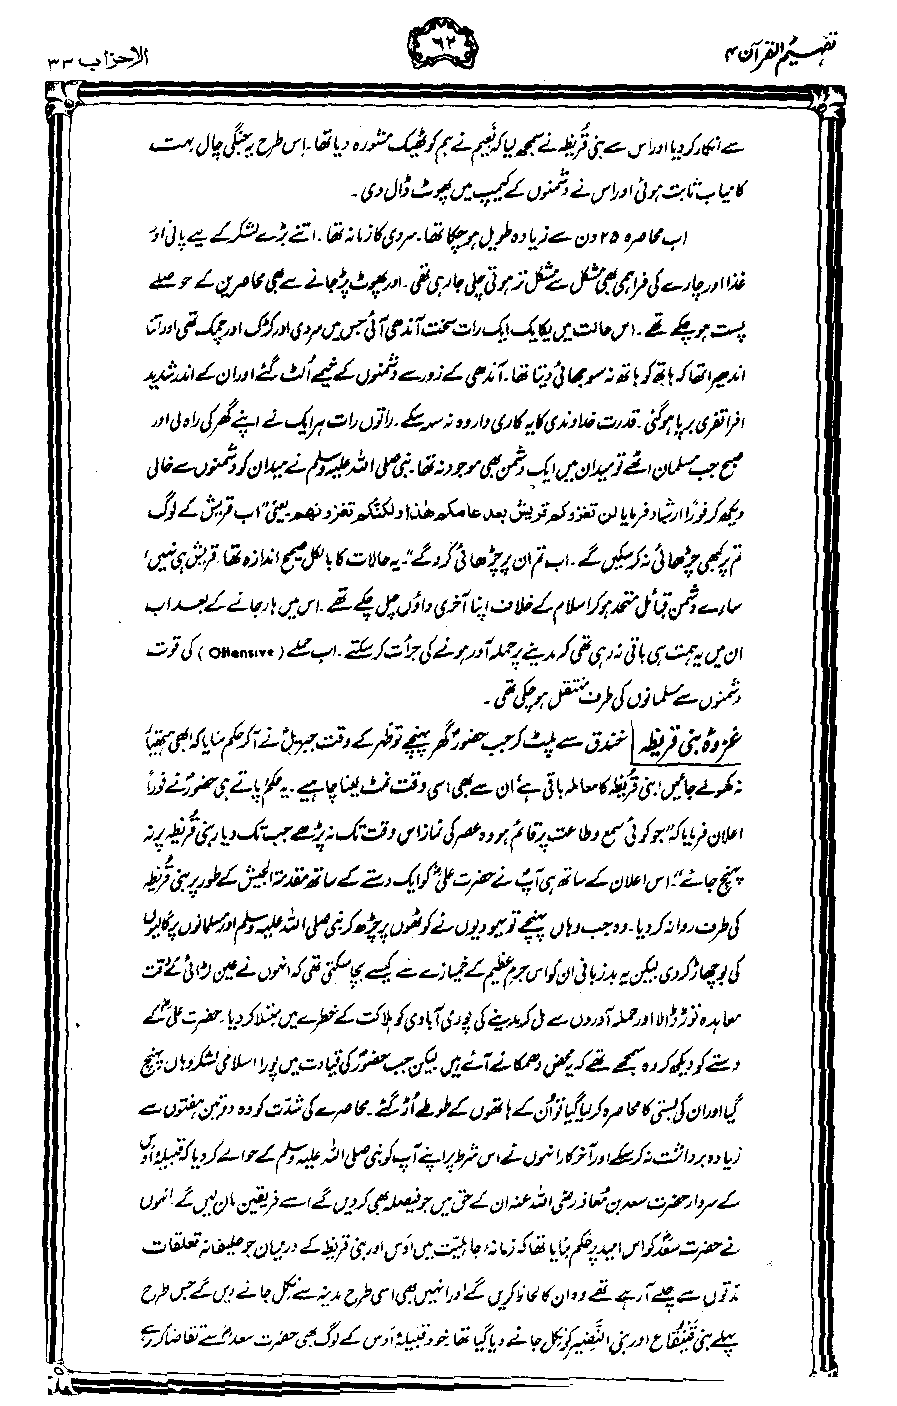 تفہیم القرآن ۴
۶۲
الاحزاب ۳۳
سے انکار کر دیا اور اس سے بنی قُریظہ نے سمجھ لیا کہ نُعیم نے ہم کو ٹھیک مشورہ دیا تھا۔ اِس طرح یہ جنگی چال بہت
کامیاب ثابت ہوئی اور اس نے دشمنوں کے کیمپ میں پھوٹ ڈال دی۔
اب محاصرہ ۲۵ دن سے زیادہ طویل ہو چکا تھا۔ سردی کا زمانہ تھا۔ اتنے بڑے لشکر کے لیے پانی اور
غذا اور چارے کی فراہمی بھی مشکل سے مشکل تر ہوتی چلی جا رہی تھی۔ اور پھوٹ پڑ جانے سے بھی محاصرین کے حوصلے
پست ہو چکے تھے۔ اس حالت میں یکایک ایک رات سخت آندھی آئی جس میں سردی اور کڑک اور چمک تھی اور اتنا
اندھیرا تھا کہ ہاتھ کو ہاتھ نہ سوجھائی دیتا تھا۔ آندھی کے زور سے دشمنوں کے خیمے اُلٹ گئے اور ان کے اندر شدید
افراتفری برپا ہو گئی۔ قدرت خداوندی کا یہ کاری وار وہ نہ سہہ سکے۔ راتوں رات ہر ایک نے اپنے گھر کی راہ لی اور
صبح جب مسلمان اٹھے تو میدان میں ایک دشمن بھی موجود نہ تھا۔ نبی صلی اللہ علیہ وسلم نے میدان کو دشمنوں سے خالی
دیکھ کر فورًا ارشاد فرمایا لن تغزوکم قریش بعد عامکم ھٰذا ولکنّکم تغزونھم یعنی "اب قریش کے لوگ
تم پر کبھی چڑھائی نہ کر سکیں گے۔ اب تم ان پر چڑھائی کرو گے"۔ یہ حالات کا بالکل صحیح اندازہ تھا۔ قریش ہی نہیں،
سارے دشمن قبائل متحد ہو کر اسلام کے خلاف اپنا آخری داؤں چل چکے تھے۔ اس میں ہار جانے کے بعد اب
ان میں یہ ہمت ہی باقی نہ رہی تھی کہ مدینے پر حملہ آور ہونے کی جرأت کر سکتے۔ اب حملے (Offensive) کی قوت
دشمنوں سے مسلمانوں کی طرف منتقل ہو چکی تھی۔
غزوۂ بنی قریظہ خندق سے پلٹ کر جب حضورؐ گھر پہنچے تو ظہر کے وقت جبریلؑ نے آ کر حکم سنایا کہ ابھی ہتھیار
نہ کھولے جائیں، بنی قُریظہ کا معاملہ باقی ہے، اُن سے بھی اسی وقت نمٹ لینا چاہیے۔ یہ حکم پاتے ہی حضورؐ نے فوراً
اعلان فرمایا کہ "جو کوئی سمع و طاعت پر قائم ہو وہ عصر کی نماز اس وقت تک نہ پڑھے جب تک دیار بنی قُریظہ پر نہ
پہنچ جائے"۔ اس اعلان کے ساتھ ہی آپؐ نے حضرت علیؓ کو ایک دستے کے ساتھ مقدمۃ الجیش کے طور پر بنی قُریظہ
کی طرف روانہ کر دیا۔ وہ جب وہاں پہنچے تو یہودیوں نے کوٹھوں پر چڑھ کر نبی صلی اللہ علیہ وسلم اور مسلمانوں پر گالیوں
کی بوچھاڑ کر دی لیکن یہ بدزبانی ان کو اس جرم عظیم کے خمیازے سے کیسے بچا سکتی تھی کہ انہوں نے عین لڑائی کے وقت
معاہدہ توڑ ڈالا اور حملہ آوروں سے مل کر مدینے کی پوری آبادی کو ہلاکت کے خطرے میں مبتلا کر دیا۔ حضرت علیؓ کے
دستے کو دیکھ کر وہ سمجھے تھے کہ یہ محض دھمکانے آئے ہیں۔ لیکن جب حضورؐ کی قیادت میں پورا اسلامی لشکر وہاں پہنچ
گیا اور ان کی بستی کا محاصرہ کر لیا گیا تو اُن کے ہاتھوں کے طوطے اُڑ گئے۔ محاصرے کی شدّت کو وہ دو تین ہفتوں سے
زیادہ برداشت نہ کر سکے اور آخر کار انہوں نے اس شرط پر اپنے آپ کو نبی صلی اللہ علیہ وسلم کے حوالے کر دیا کہ قبیلۂ اوس
کے سردار حضرت سعد بن مُعاذ رضی اللہ عنہ ان کے حق میں جو فیصلہ بھی کر دیں گے اسے فریقین مان لیں گے۔ انہوں
نے حضرت سعدؓ کو اس امید پر حکم بنایا تھا کہ زمانۂ جاہلیت میں اَوس اور بنی قریظہ کے درمیان جو حلیفانہ تعلقات
مدّتوں سے چلے آ رہے تھے وہ ان کا لحاظ کریں گے اور انہیں بھی اسی طرح مدینہ سے نکل جانے دیں گے جس طرح
پہلے بنی قَینُقاع اور بنی النَّضیر کو نکل جانے دیا گیا تھا۔ خود قبیلۂ اَوس کے لوگ بھی حضرت سعدؓ سے تقاضا کر رہے